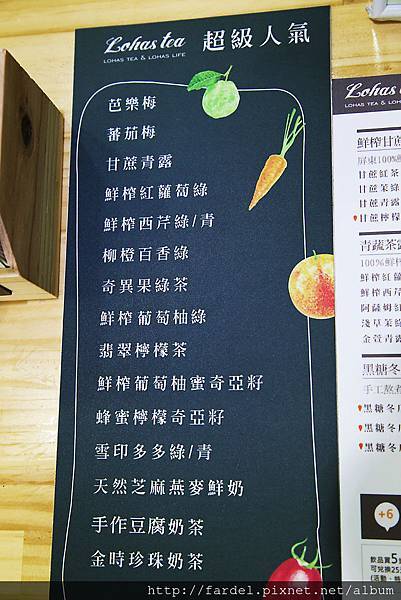 Lohas tea
LOHAS TEA & LOHAS LIFE
超級人氣
芭樂梅
蕃茄梅
甘蔗青露
鮮榨紅蘿蔔綠
鮮榨西芹綠/青
柳橙百香綠
奇異果綠茶
鮮榨葡萄柚綠
翡翠檸檬茶
鮮榨葡萄柚蜜奇亞籽
蜂蜜檸檬奇亞籽
雪印多多綠/青
天然芝麻燕麥鮮奶
手作豆腐奶茶
金時珍珠奶茶
Lohas
LOHAS TEA & LO
鮮榨甘蔗
屏東100%
甘蔗紅茶
甘蔗茉綠
甘蔗青露
甘蔗檸檬
青蔬茶露
100%鮮榨
鮮榨紅蘿
鮮榨西芹
阿薩姆紅
淺草茉綠
金萱青露
黑糖冬
手工熬煮
黑糖冬
黑糖冬
黑糖冬
+6
飲品買5
可兌換25
http://fardel.pixnet.net/album